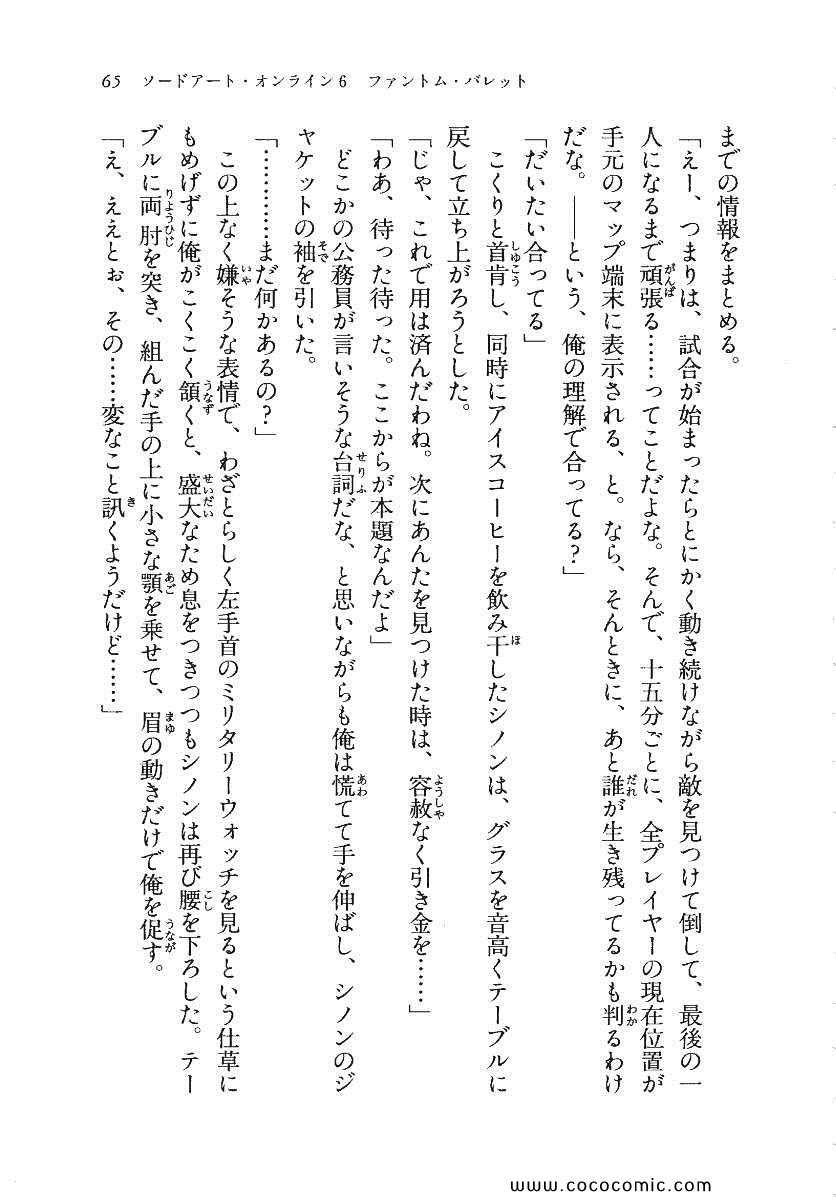 65 ソードアート・オンライン6 ファントム・バレット
までの情報をまとめる。
「えー、つまりは、試合が始まったらとにかく動き続けながら敵を見つけて倒して、最後の一
人になるまで頑張る……ってことだよな。そんで、十五分ごとに、全プレイヤーの現在位置が
手元のマップ端末に表示される、と。なら、そんときに、あと誰が生き残ってるかも判るわけ
だな。――という、俺の理解で合ってる?」
「だいたい合ってる」
こくりと首肯し、同時にアイスコーヒーを飲み干したシノンは、グラスを音高くテーブルに
戻して立ち上がろうとした。
「じゃ、これで用は済んだわね。次にあんたを見つけた時は、容赦なく引き金を……」
「わあ、待った待った。ここからが本題なんだよ」
どこかの公務員が言いそうな台詞だな、と思いながらも俺は慌てて手を伸ばし、シノンのジ
ャケットの袖を引いた。
「…………まだ何かあるの?」
この上なく嫌そうな表情で、わざとらしく左手首のミリタリーウォッチを見るという仕草に
もめげずに俺がこくこく頷くと、盛大なため息をつきつつもシノンは再び腰を下ろした。テー
ブルに両肘を突き、組んだ手の上に小さな顎を乗せて、眉の動きだけで俺を促す。
「え、ええとぉ、その……変なこと訊くようだけど……」
www.cococomic.com